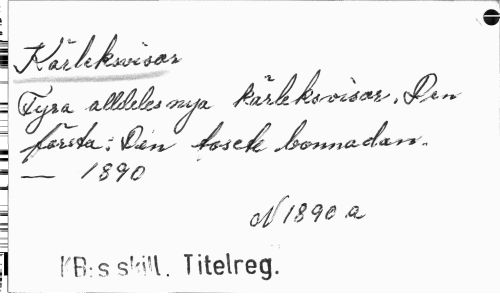 Kärleksvisor
Fyra alldeles nya kärleksvisor. Den
första: Den tosete bonnadan.
— 1890
N 1890 a
KB:s skill. Titelreg.